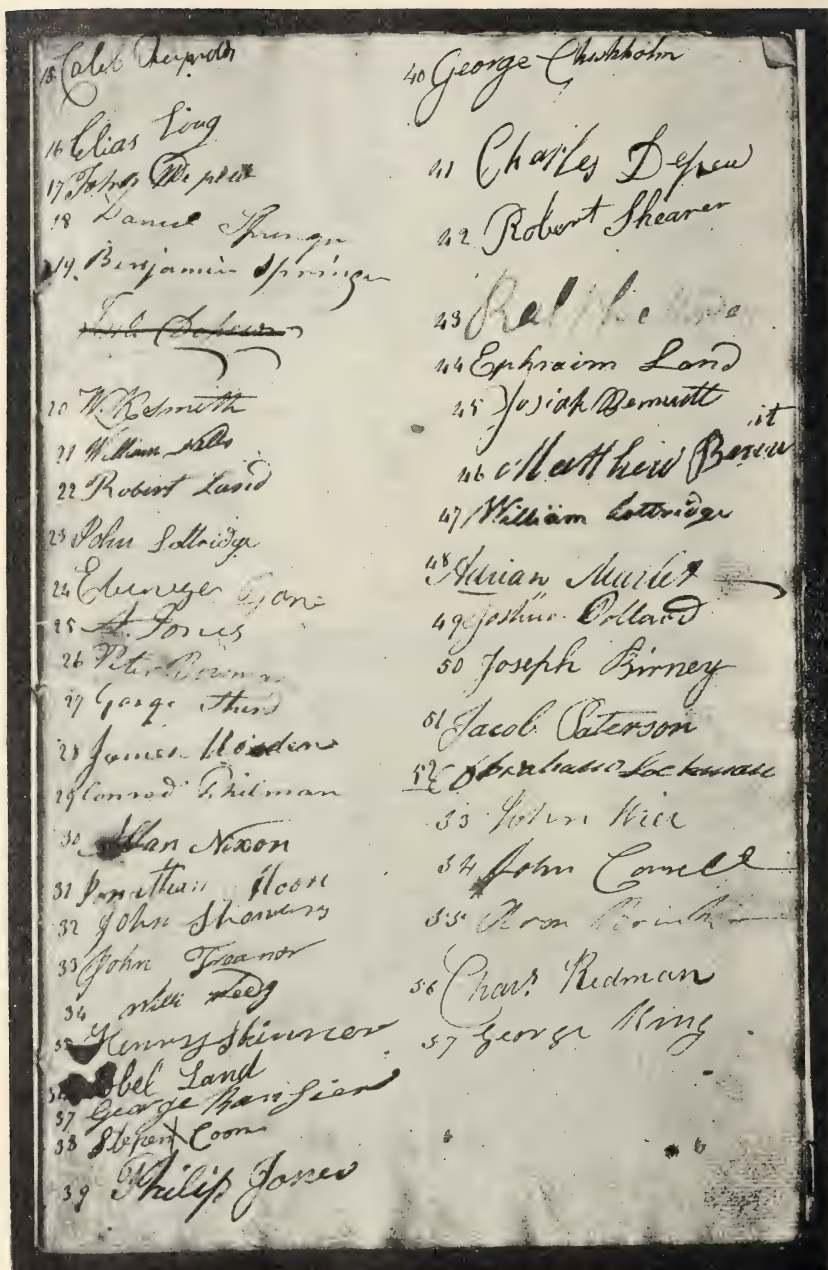 15 Caleb Reynolds
16 Elias Long
17 John Depew
18 Daniel Springer
19. Benjamin Springer
20 W. Kesmith
21 William
22 Robert Land
23 John Lottridge
24 Ebenezer Jones
25 A. Jones
26 Peter Bowman
27 George
28 James
29 Conrod Philman
30 Allan Nixon
31 Jonathan Moore
32 John Showers
33 John Treanor
34 Willi
35 Henry Skinner
36 Abel Land
37 George Ransier
38 Stepen X Coon
39 Philip Jones
40 George Chishholm
41 Charles Depew
42 Robert Shearer
43
44 Ephraim Land
45 Josiah
46 Matthew
47 William Lottridge
48 Adrian Marlet
49 Joshua
50 Joseph Birney
51 Jacob Paterson
52 Abraham Lockman
53 John
54 John Cornell
55 Aron
56 Chas. Redman
57 George King